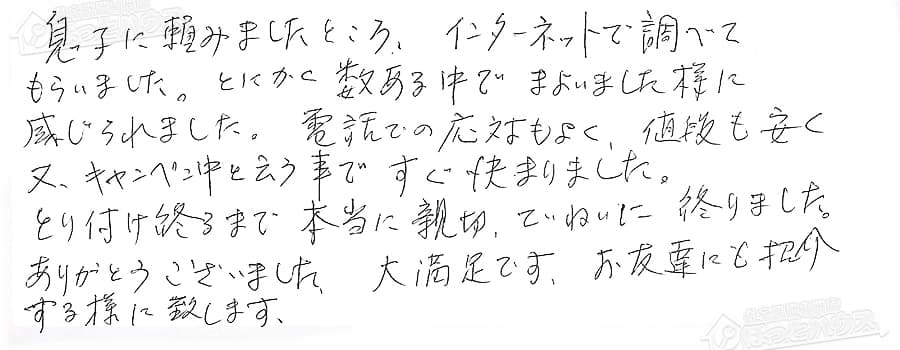 息子に頼みましたところ、インターネットで調べて
もらいました。とにかく数ある中でまよいました様に
感じられました。電話での応対もよく、値段も安く
又、キャンペン中と云う事ですぐ決まりました。
とり付け終るまで本当に親切、ていねいに終りました。
ありがとうございました、大満足です、お友達にも紹介
する様に致します、